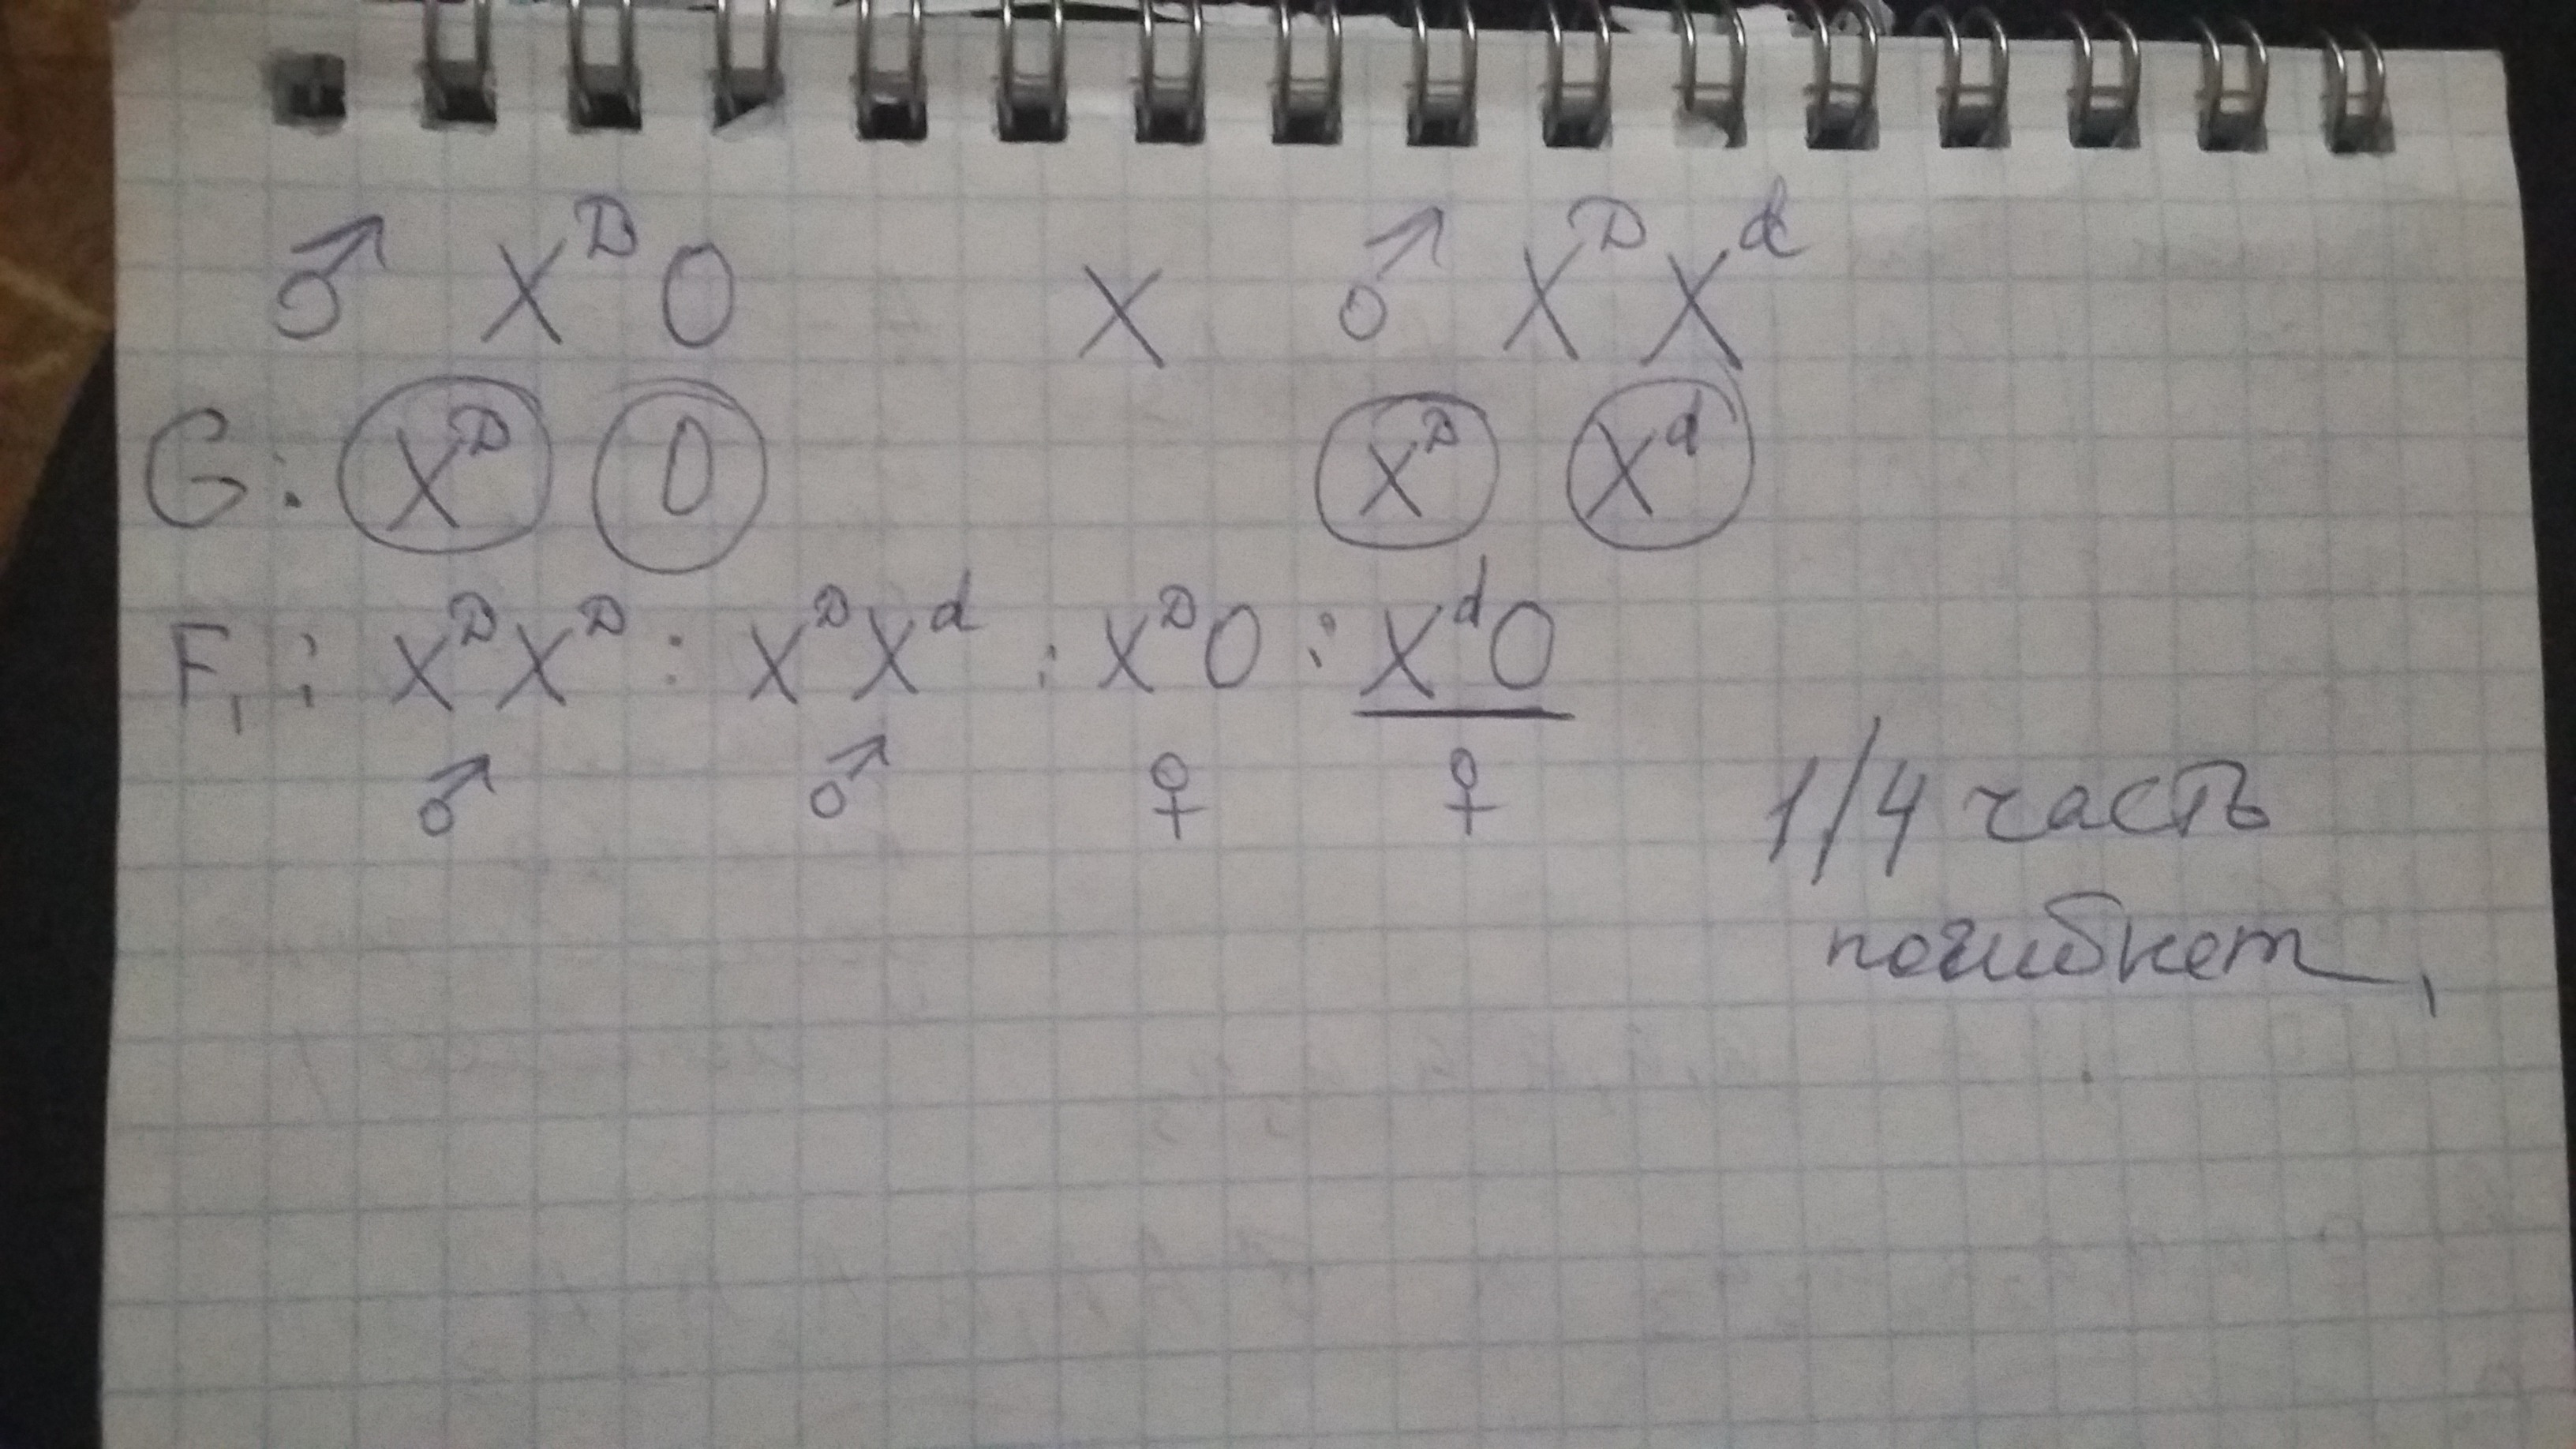 ♂ X^D O × ♂ X^D X^d
G: X^D O X^D X^d
F₁: X^D X^D : X^D X^d : X^D O : X^d O
♂ ♂ ♀ ♀
1/4 часть
погибнет,